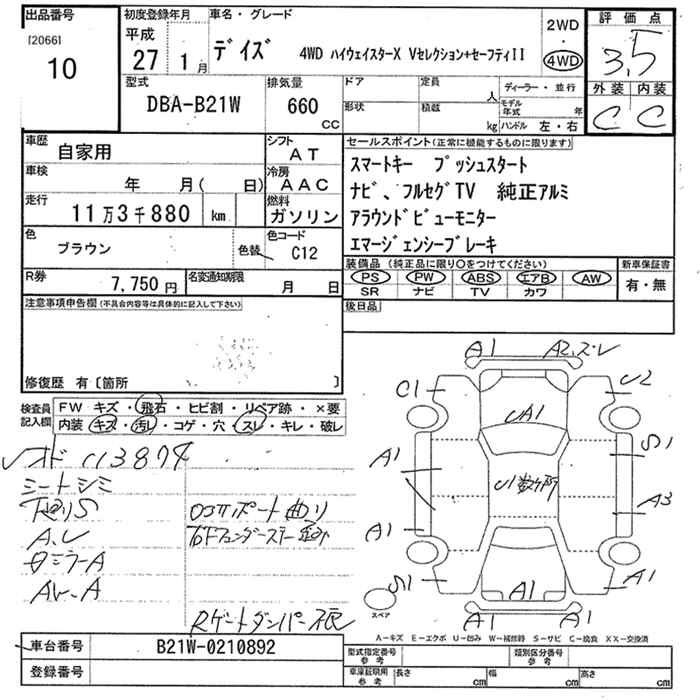 出品番号
[2066]
10
初度登録年月
平成
27 1 月
車名・グレード
デイズ 4WD ハイウェイスターX Vセレクション+セーフティII
2WD
・
4WD
評価点
3.5
外装 内装
C C
型式
DBA-B21W
排気量
660
CC
ドア
形状
定員
人
積載
kg
ディーラー・並行
モデル年式 年
ハンドル 左・右
車歴
自家用
シフト
AT
車検
年 月( 日)
冷房
AAC
走行
11万3千880 km
燃料
ガソリン
色
ブラウン
色替
色コード
C12
R券
7,750円
名変通知期限
月 日
セールスポイント(正常に機能するものに限ります)
スマートキー プッシュスタート
ナビ、フルセグTV 純正アルミ
アラウンドビューモニター
エマージェンシーブレーキ
装備品(純正品に限り○をつけてください)
PS PW ABS エアB AW
SR ナビ TV カワ
新車保証書
有・無
後日品
注意事項申告欄(不具合内容等は具体的に記入して下さい)
修復歴 有〔箇所 〕
検査員
記入欄
FW キズ・飛石・ヒビ割・リペア跡・×要
内装 キズ・汚レ・コゲ・穴・スレ・キレ・破レ
シートシミ
A、レ
A1
C1
U2
UA1
A1
S1
A3
A1
S1
A1
A1
A1
A1
スペア
Rゲートダンパー不良
A-キズ E-エクボ U-凹み W-補修跡 S-サビ C-腐食 XX-交換済
車台番号
B21W-0210892
登録番号
型式指定番号
参考
類別区分番号
参考
車庫証明用
参考
長さ cm 幅 cm 高さ cm